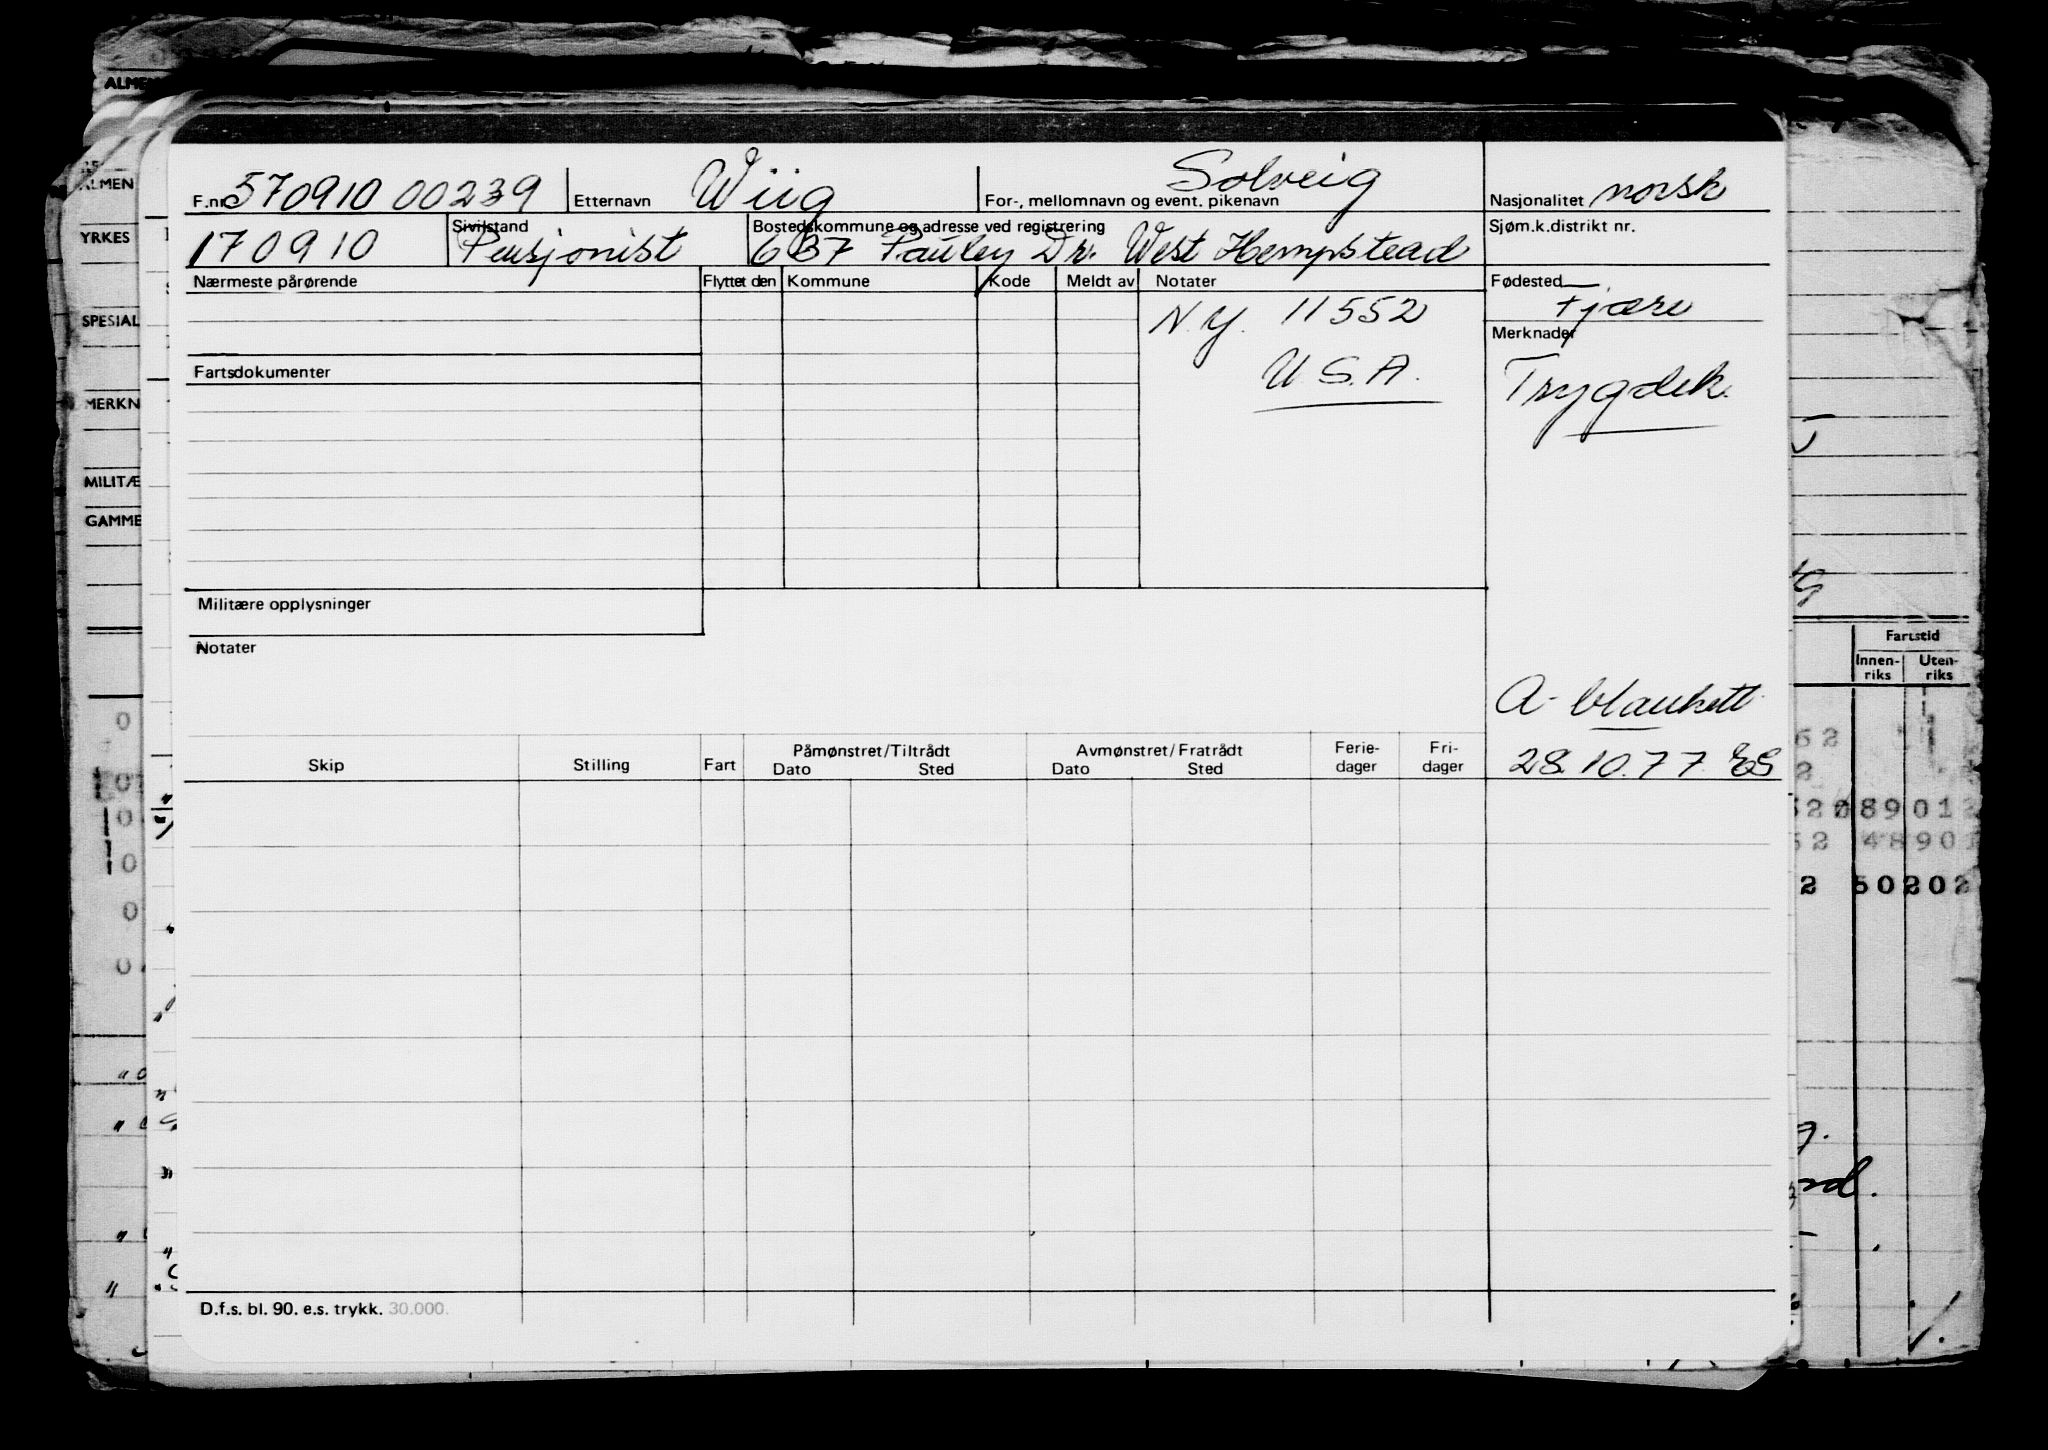 F.nr 570910 00239 Etternavn Wiig For-, mellomnavn og event. pikenavn Solveig Nasjonalitet norsk
170910 Sivilstand Pensjonist Bostedskommune og adresse ved registrering 637 Pauley Dr. West Hempstead Sjøm.k.distrikt nr.
Nærmeste pårørende Flyttet den Kommune Kode Meldt av Notater Fødested Fjære
N.Y. 11552 Merknader
Fartsdokumenter U.S.A. Trygdek.
Militære opplysninger
Notater
A- blankett
Skip Stilling Fart Påmønstret/Tiltrådt Avmønstret/Fratrådt Ferie- Fri-
Dato Sted Dato Sted dager dager 28.10.77 ES
D.f.s. bl. 90. e.s. trykk. 30.000.
ALMEN
YRKES
SPESIAL
MERKN
MILITÆ
GAMME
Fartstid
Innen- Uten-
riks riks